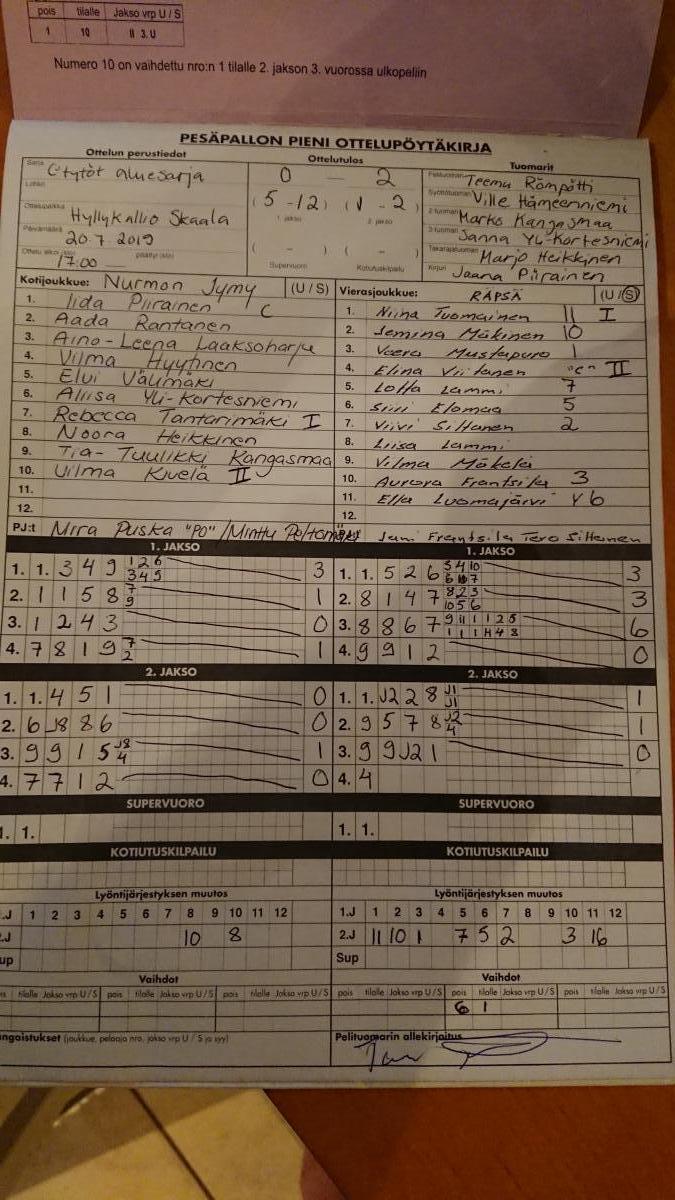 pois tilalle Jakso vrp U / S
1 10 II 3. U
Numero 10 on vaihdettu nro:n 1 tilalle 2. jakson 3. vuorossa ulkopeliin
PESÄPALLON PIENI OTTELUPÖYTÄKIRJA
Ottelun perustiedot
Sarja
C tytöt aluesarja
Lohko
Ottelupaikka
Hyllykallio Skaala
Päivämäärä
20.7.2019
Ottelu alkoi (klo) päättyi (klo)
17:00
Ottelutulos
0 — 2
(5 - 12) (1 - 2)
1. jakso 2. jakso
( - ) ( - )
Supervuoro Kotiutuskilpailu
Tuomarit
Pelituomari Teemu Römpötti
Syöttötuomari Ville Hämeenniemi
2-tuomari Marko Kangasmaa
3-tuomari Sanna Yli-Kortesniemi
Takarajatuomari Marjo Heikkinen
Kirjuri Jaana Piirainen
Kotijoukkue: Nurmon Jymy (U / S)
1. Iida Piirainen C
2. Aada Rantanen
3. Aino-Leena Laaksoharju
4. Vilma Hyytinen
5. Elvi Välimäki
6. Aliisa Yli-Kortesniemi
7. Rebecca Tantarimäki I
8. Noora Heikkinen
9. Tia-Tuulikki Kangasmaa
10. Vilma Kivelä II
11.
12.
PJ:t Mira Puska "PO" / Minttu
Vierasjoukkue: RÄPSÄ (U / S)
1. Niina Tuomainen 11 I
2. Jemina Mäkinen 10
3. Veera Mustapuro 1
4. Elina Viitanen "C" II
5. Lotta Lammi 7
6. Siiri Elomaa 5
7. Viivi Siltanen 2
8. Liisa Lammi
9. Vilma Mäkelä
10. Aurora Frantsila 3
11. Ella Luomajärvi 6
12.
Jani Frantsila Tero Siltanen
1. JAKSO
1. 1. 3 4 9 1 2 6 3 4 5 3
2. 1 1 5 8 7 9 1
3. 1 2 4 3 0
4. 7 8 1 9 7 2 1
1. JAKSO
1. 1. 5 2 6 3
2. 8 1 4 7 8 2 3 10 5 6 3
3. 8 8 6 7 6
4. 9 9 1 2 0
2. JAKSO
1. 1. 4 5 1 0
2. 6 J8 8 6 0
3. 9 9 1 5 J8 4 1
4. 7 7 1 2 0
2. JAKSO
1. 1. J2 2 8 J1 J1 1
2. 9 5 7 8 J2 4 1
3. 9 9 J2 1 0
4. 4
SUPERVUORO
1. 1.
SUPERVUORO
1. 1.
KOTIUTUSKILPAILU
KOTIUTUSKILPAILU
Lyöntijärjestyksen muutos
1.J 1 2 3 4 5 6 7 8 9 10 11 12
2.J 10 8
Sup
Lyöntijärjestyksen muutos
1.J 1 2 3 4 5 6 7 8 9 10 11 12
2.J 11 10 1 7 5 2 3 16
Sup
Vaihdot
pois tilalle Jakso vrp U / S pois tilalle Jakso vrp U / S pois tilalle Jakso vrp U / S
Vaihdot
pois tilalle Jakso vrp U / S pois tilalle Jakso vrp U / S pois tilalle Jakso vrp U / S
6 1
Rangaistukset (joukkue, pelaaja nro, jakso vrp U / S ja syy)
Pelituomarin allekirjoitus